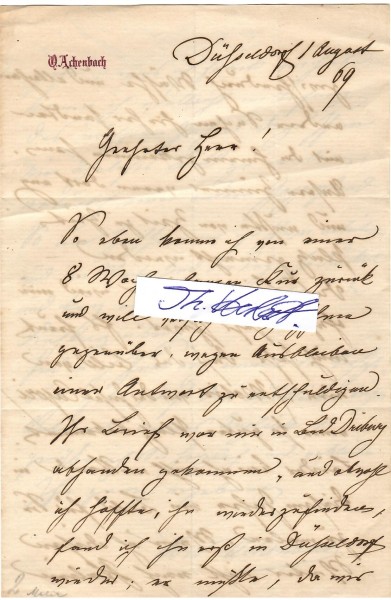 O. Achenbach
Düsseldorf 1 August
69
Geehrter Herr!
So eben komme ich von einer
8 Woch Kur zurück
und will
gegenüber, wegen Ausbleiben
einer Antwort zu entschuldigen.
Ihr Brief war mir in Bad Driburg
abhanden gekommen, und obwohl
ich hoffte, ihn wiederzufinden,
fand ich ihn erst in Düsseldorf
wieder; er mußte, da wir